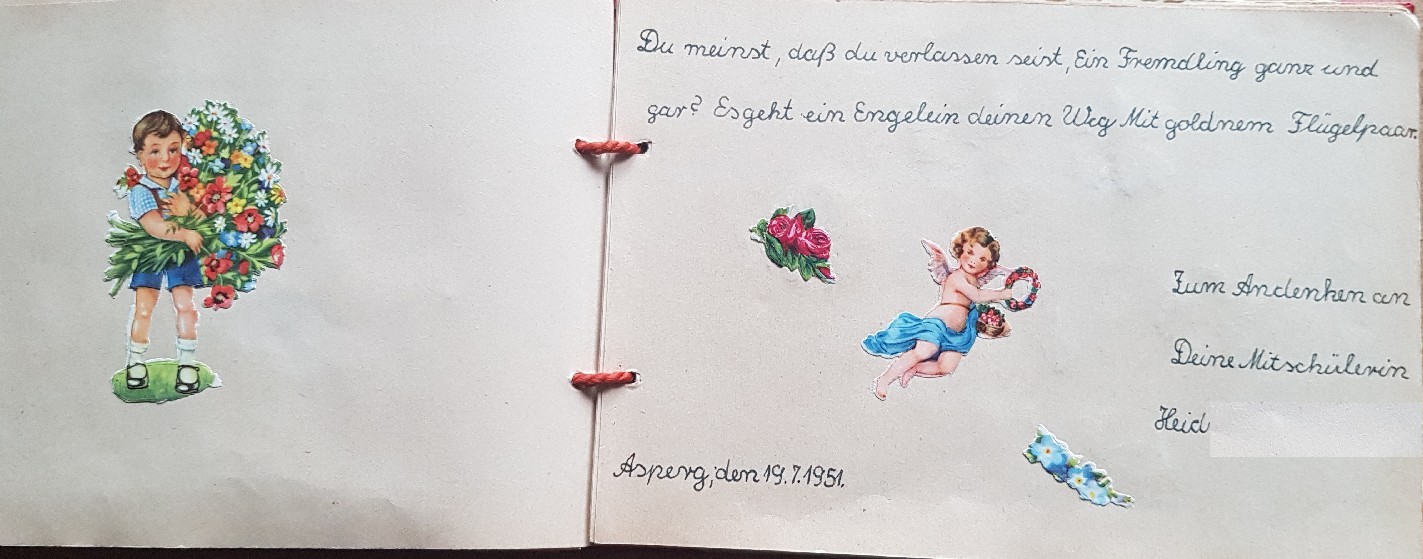 Du meinst, daß du verlassen seist, Ein Fremdling ganz und
gar? Es geht ein Engelein deinen Weg Mit goldnem Flügelpaar.
Zum Andenken an
Deine Mitschülerin
Heid
Asperg, den 19.7.1951.